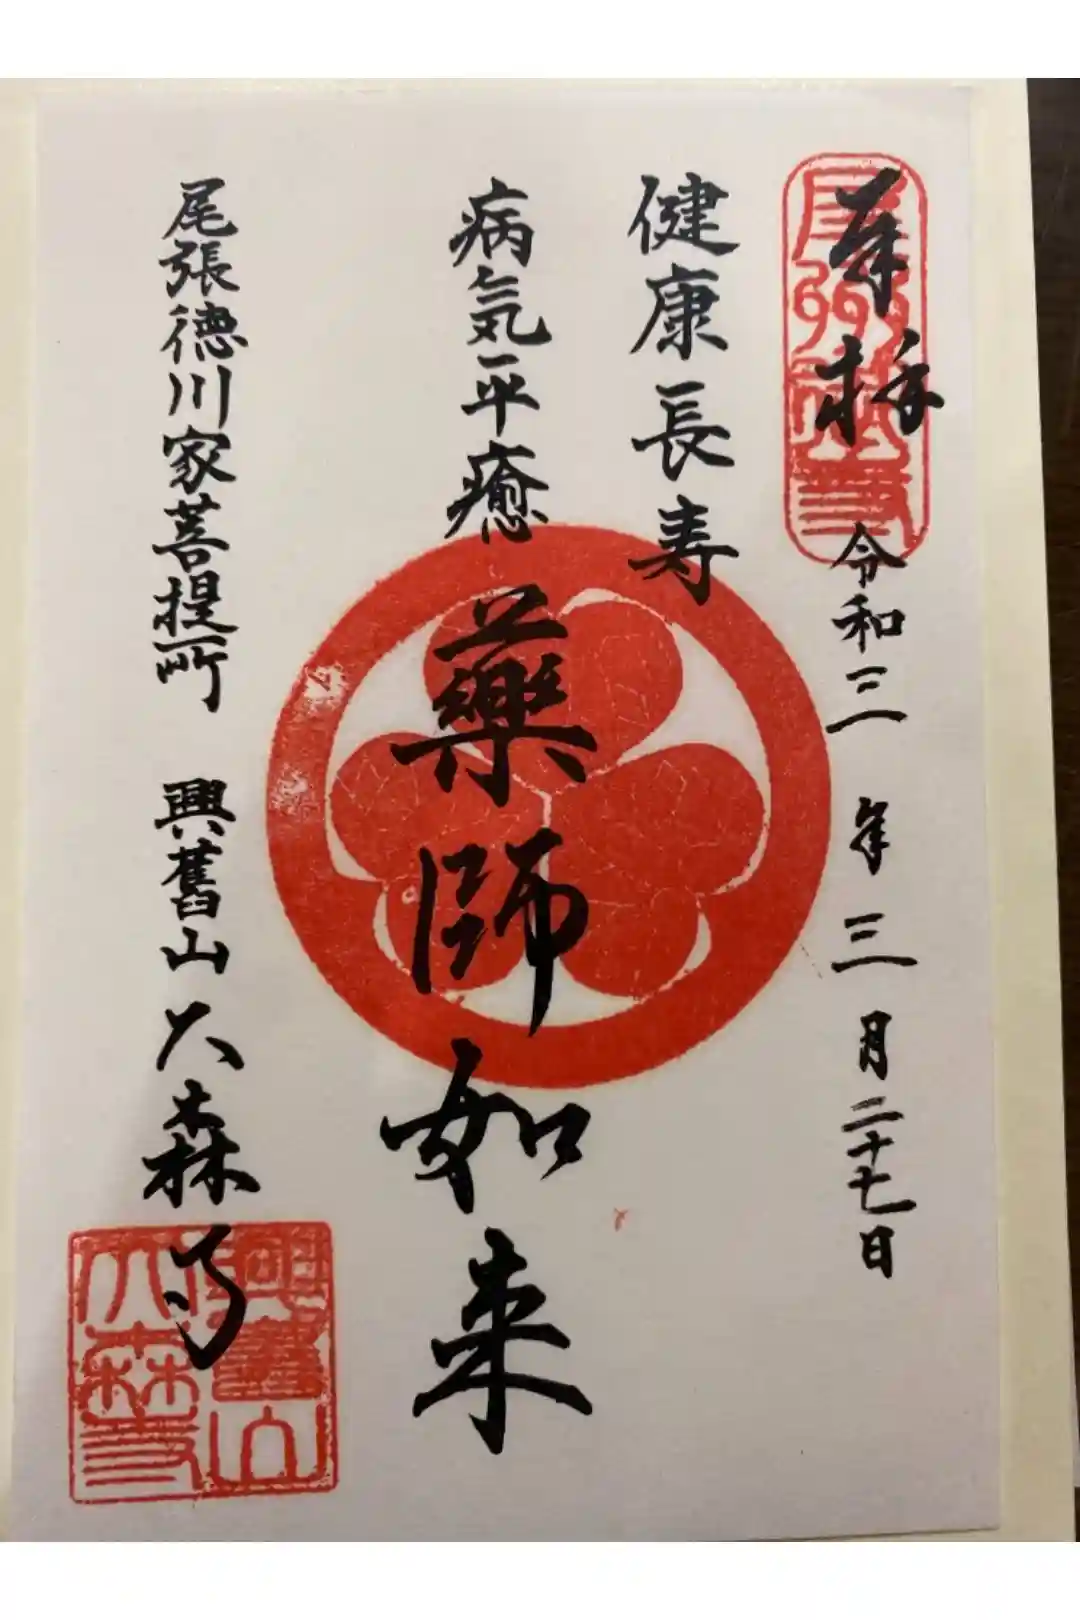 奉拝 令和三年三月二十七日
健康長寿
病気平癒 藥師如来
尾張徳川家菩提所 興舊山大森寺
興舊山
大森寺